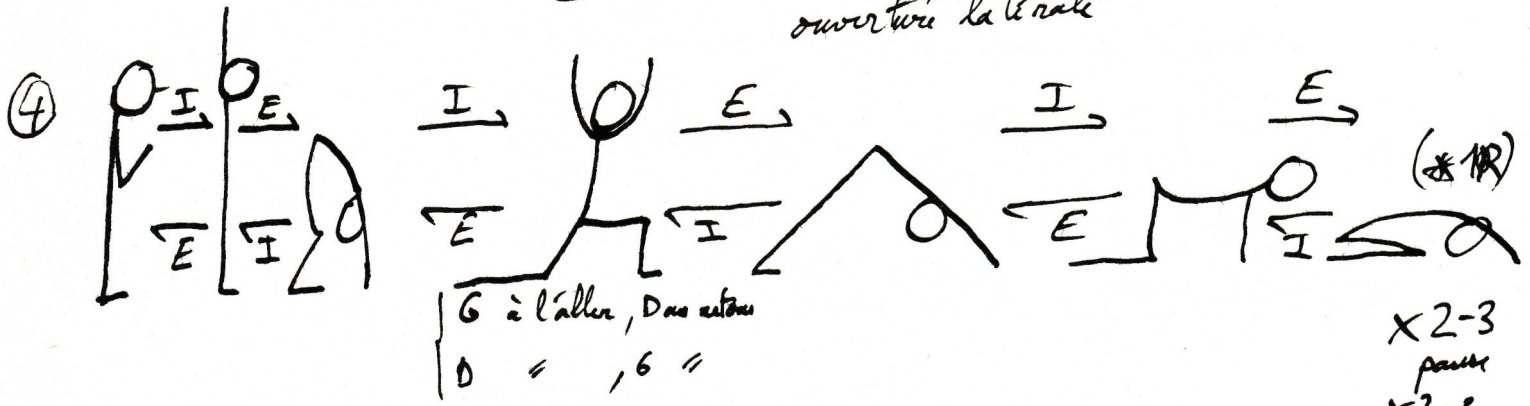 ouverture latérale
④ I E I E I E
(* 1R)
E I E I E I
G à l'aller, D au retour
D " , G "
x 2-3
pause